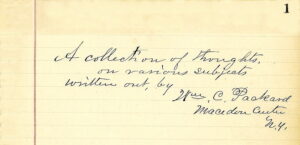 1
A collection of thoughts,
on various subjects
written out, by
Wm. C. Packard
Macedon Centre
N.Y.